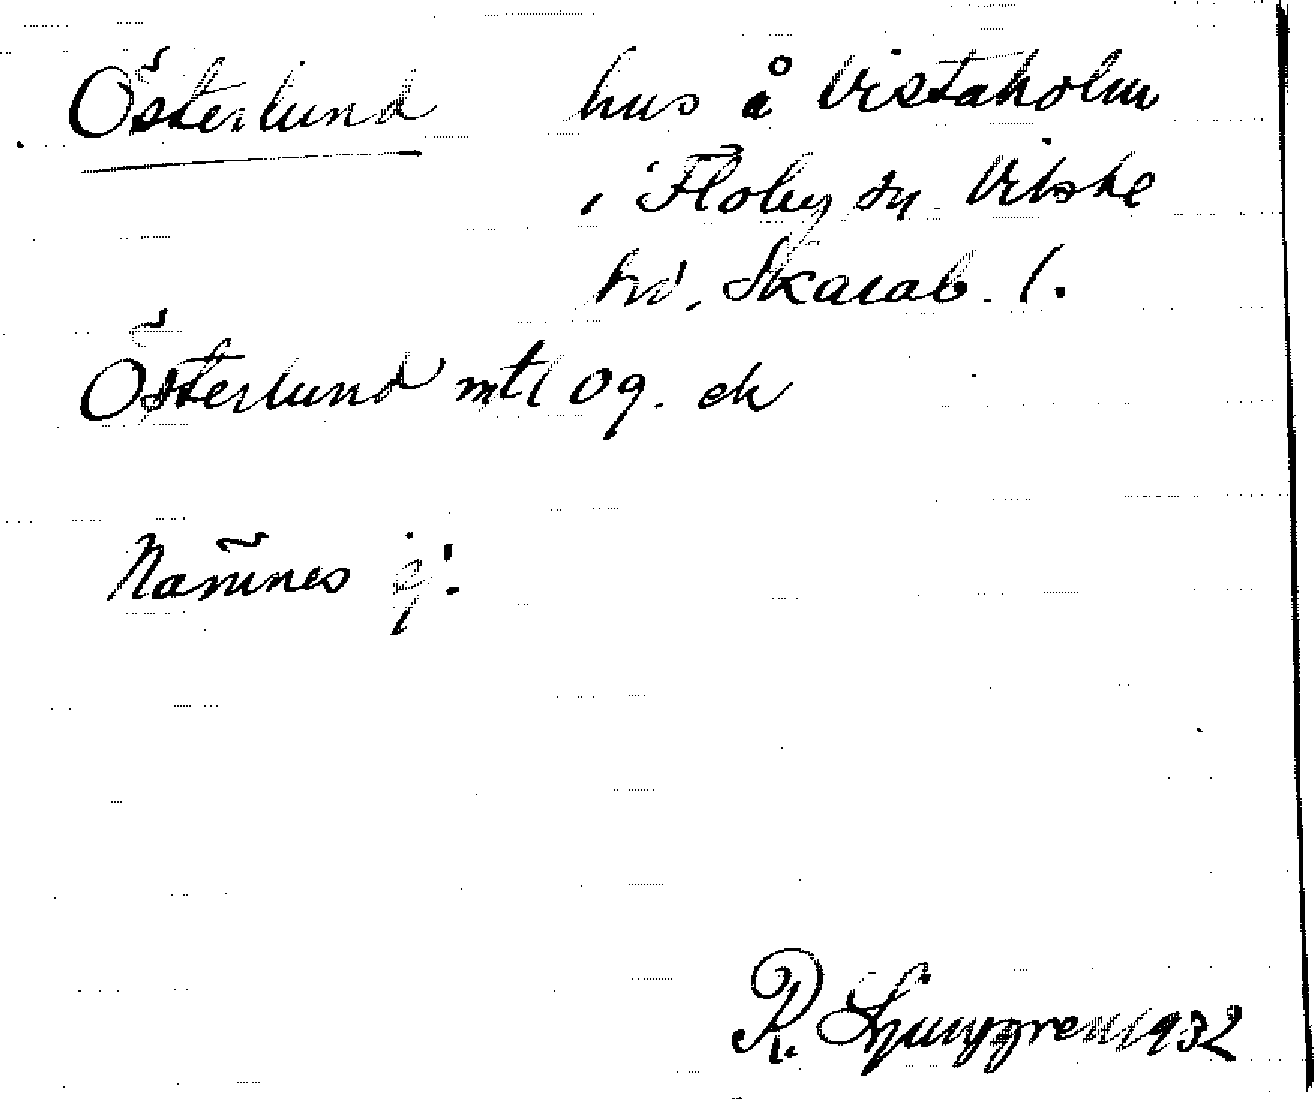 Österlund hus å Vistaholm
i Floby sn Vilske
hd, Skarab. l.
Österlund mtl og. ek
Namnes ej!
R. Ljunggren 1932